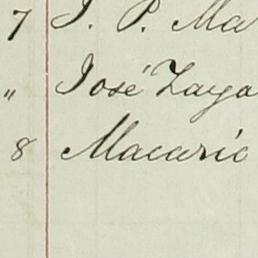 7 J. P. Ma
" José Zaya
8 Macario